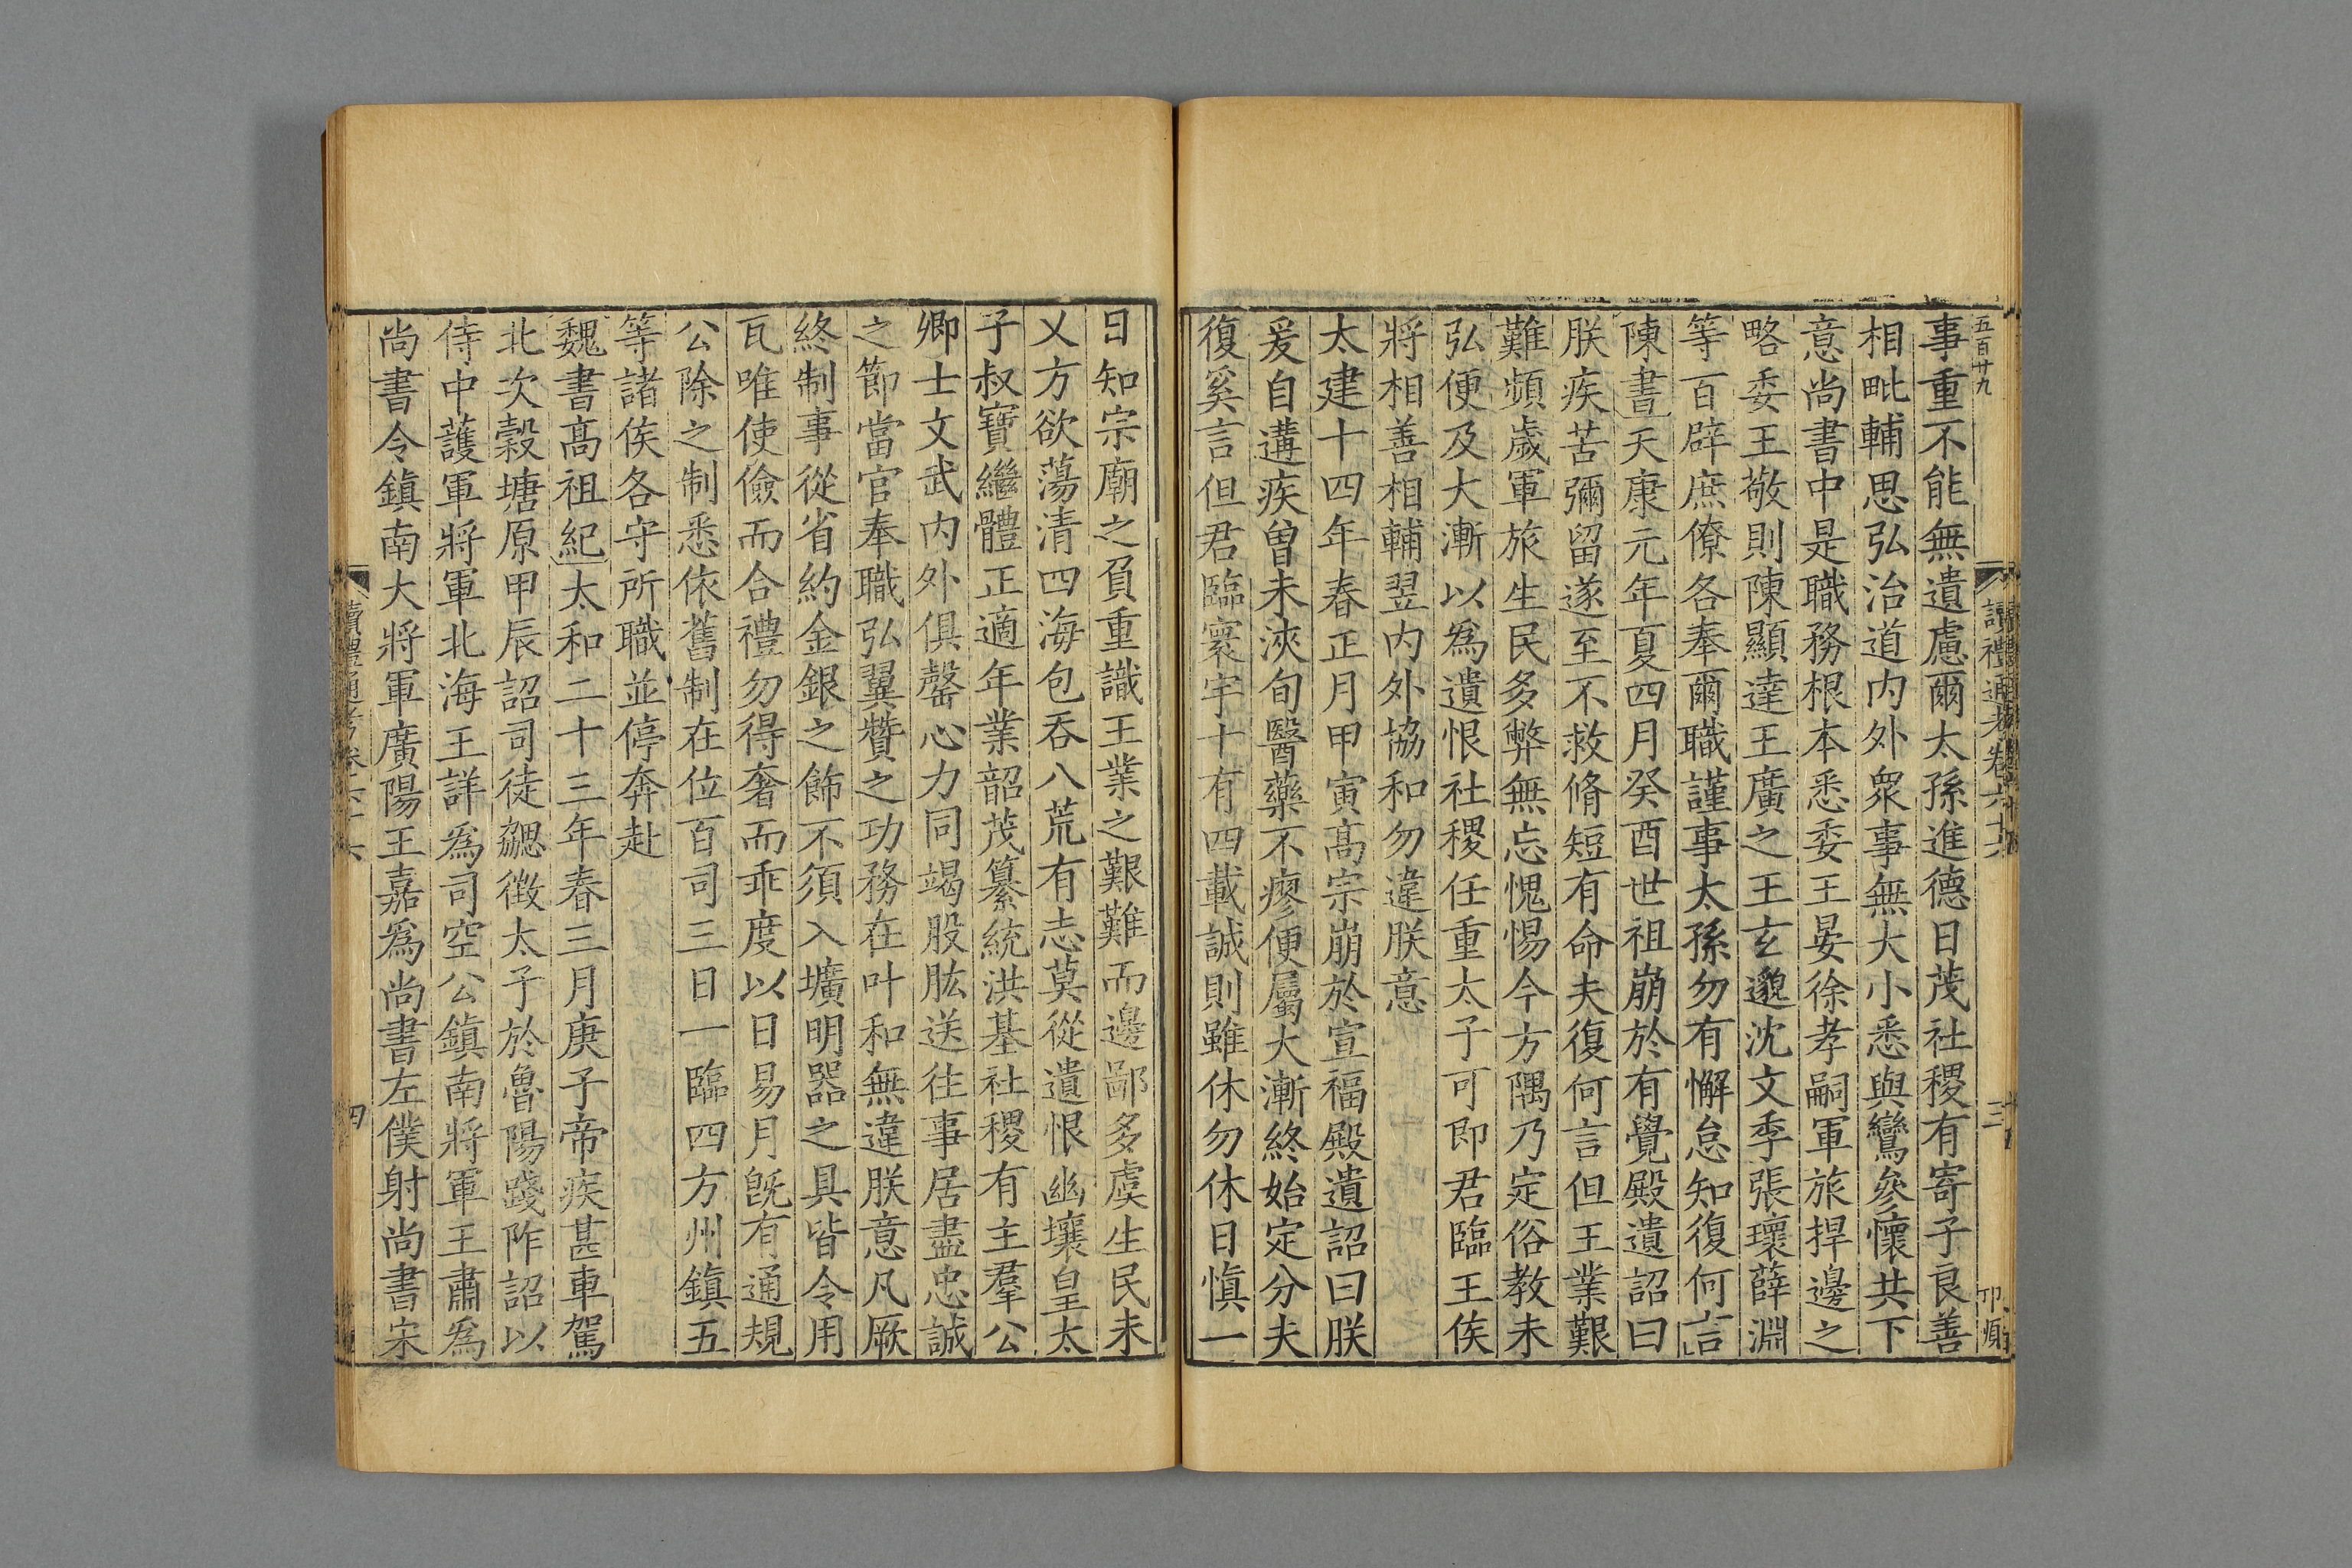 五百廿九
讀禮通考卷六十六
三
事重不能無遺慮爾太孫進德日茂社稷有寄子良善
相毗輔思弘治道内外衆事無大小悉與鸞參懷共下
意尚書中是職務根本悉委王晏徐孝嗣軍旅捍邊之
略委王敬則陳顯達王廣之王玄邈沈文季張瓌薛淵
等百辟庶僚各奉爾職謹事太孫勿有懈怠知復何言
陳書天康元年夏四月癸酉世祖崩於有覺殿遺詔曰
朕疾苦彌留遂至不救脩短有命夫復何言但王業艱
難頻歲軍旅生民多弊無忘愧惕今方隅乃定俗教未
弘便及大漸以爲遺恨社稷任重太子可即君臨王侯
將相善相輔翌内外協和勿違朕意
太建十四年春正月甲寅髙宗崩於宣福殿遺詔曰朕
爰自遘疾曾未浹旬醫藥不瘳便屬大漸終始定分夫
復奚言但君臨寰宇十有四載誠則雖休勿休日慎一
日知宗廟之負重識王業之艱難而邊鄙多虞生民未
乂方欲蕩清四海包吞八荒有志莫從遺恨幽壤皇太
子叔寶繼體正適年業韶茂纂統洪基社稷有主羣公
卿士文武内外俱罄心力同竭股肱送往事居盡忠誠
之節當官奉職弘翼贊之功務在叶和無違朕意凡厥
終制事從省約金銀之飾不須入壙明器之具皆令用
瓦唯使儉而合禮勿得奢而乖度以日易月旣有通規
公除之制悉依舊制在位百司三日一臨四方州鎮五
等諸侯各守所職並停奔赴
魏書髙祖紀太和二十三年春三月庚子帝疾甚車駕
北次榖塘原甲辰詔司徒勰徴太子於魯陽踐阼詔以
侍中護軍將軍北海王詳爲司空公鎮南將軍王肅爲
尚書令鎮南大將軍廣陽王嘉爲尚書左僕射尚書宋
讀禮通考卷六十六
四